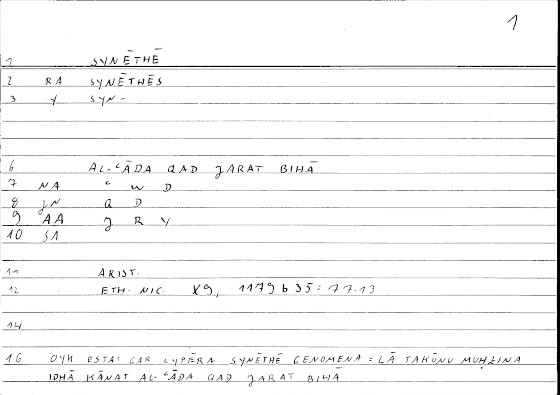 1
1 SYNĒTHĒ
2 RA SYNĒTHĒS
3 Y SYN-
6 AL-ʿĀDA QAD JARAT BIHĀ
7 NA ʿ W D
8 JN Q D
9 AA J R Y
10 SA
11 ARIST.
12 ETH. NIC. X9, 1179 b 35 = 77.13
14
16 OYK ESTAI GAR LYPĒRA SYNĒTHĒ GENOMENA = LĀ TAKŪNU MUḤZINA
IDHĀ KĀNAT AL-ʿĀDA QAD JARAT BIHĀ